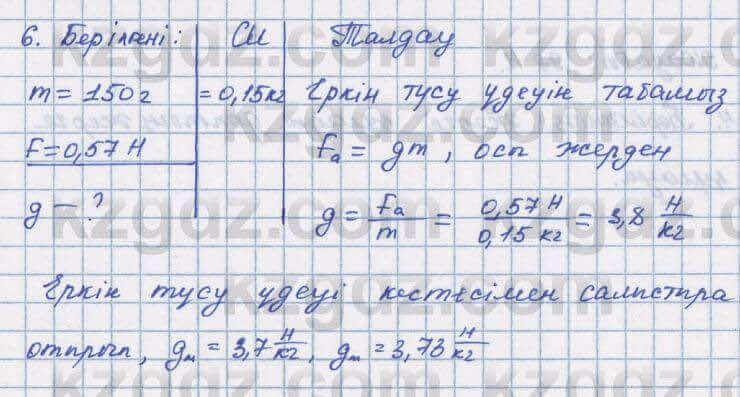 6. Берілгені: СИ Талдау
m = 150 г = 0,15 кг Еркін түсу үдеуін табамыз
F = 0,57 Н Fа = gm, осы жерден
g - ? g = Fа/m = 0,57 Н / 0,15 кг = 3,8 Н/кг
Еркін түсу үдеуі кестесімен салыстыра
отырып, gм = 3,7 Н/кг, gм = 3,73 Н/кг
kzgdz.com